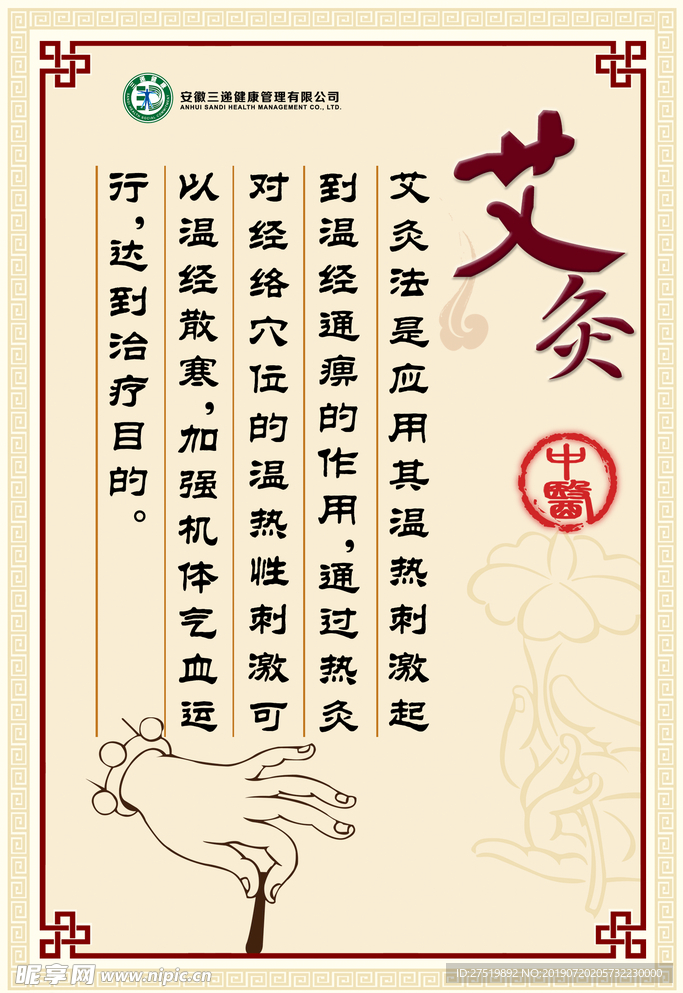 安徽三递健康管理有限公司
ANHUI SANDI HEALTH MANAGEMENT CO., LTD.
艾灸
中醫
艾灸法是应用其温热刺激起
到温经通痹的作用，通过热灸
对经络穴位的温热性刺激可
以温经散寒，加强机体气血运
行，达到治疗目的。
昵享网 www.nipic.cn
ID:27519892 NO:20190720205732230000